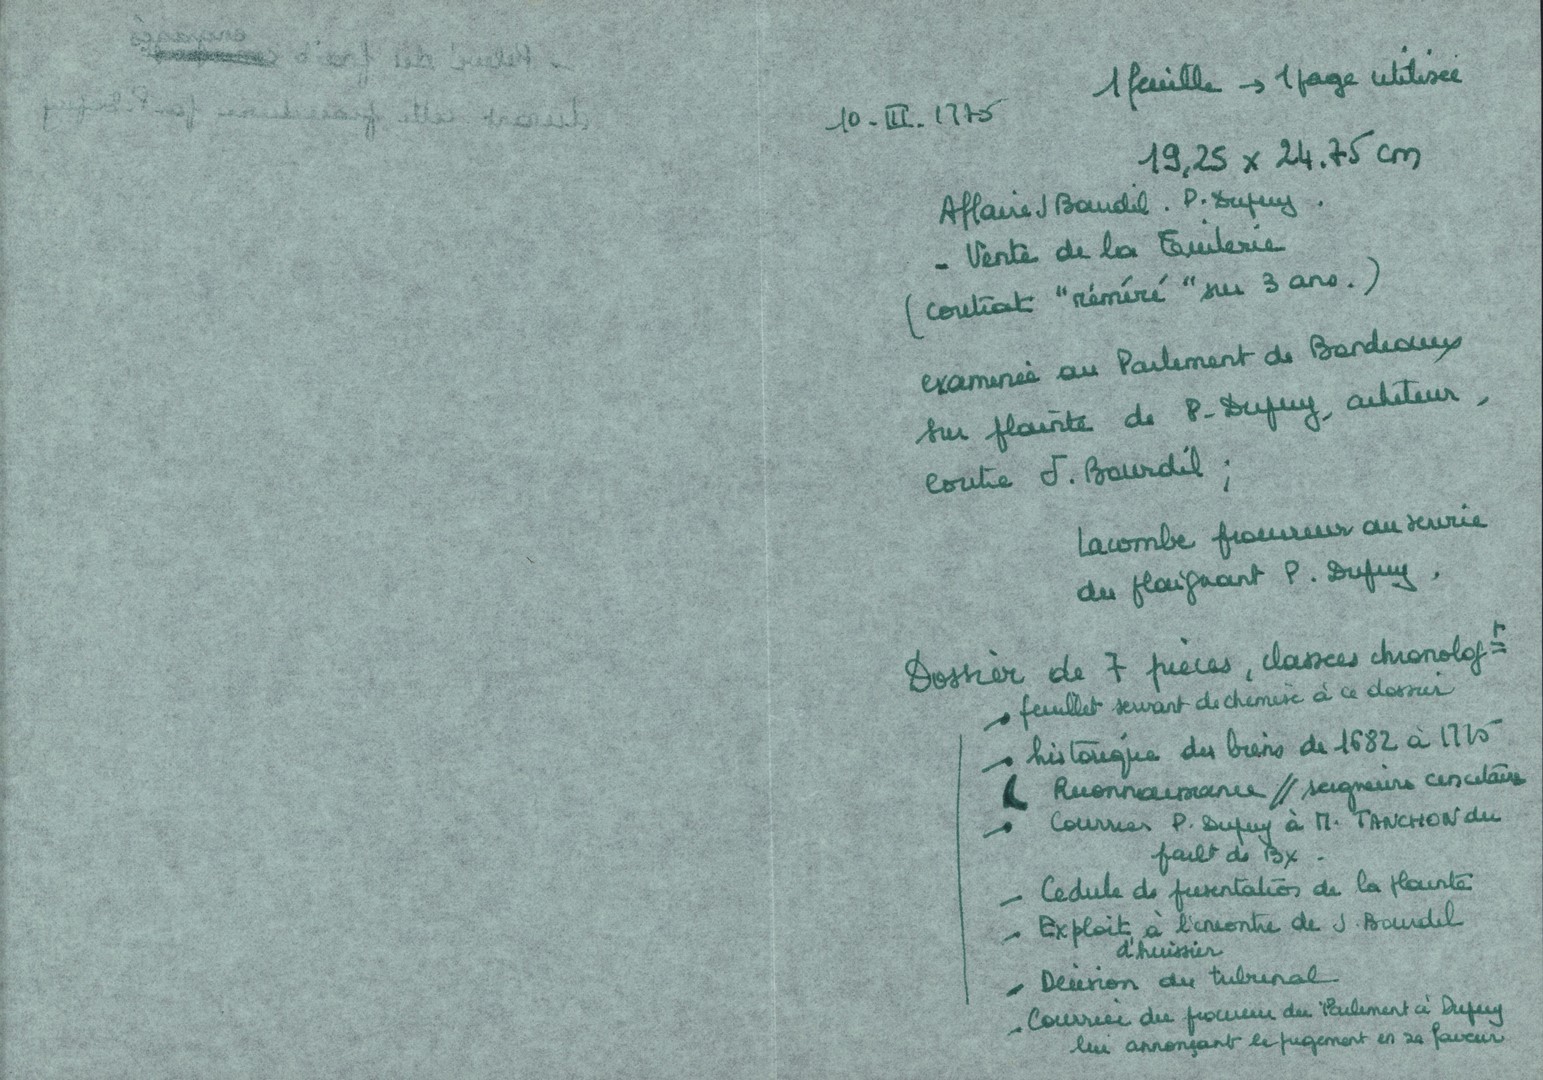 1 feuille → 1 page utilisée
10-II.1775
19,25 x 24.75 cm
Affaire J Bourdil. P. Dupuy.
- Vente de la Tuilerie
(contrat "réméré" sur 3 ans.)
examinée au Parlement de Bordeaux
sur plainte de P. Dupuy, acheteur,
contre J. Bourdil ;
Lacombe procureur au service
du plaignant P. Dupuy.
Dossier de 7 pièces, classées chronolog t
- feuillet servant de chemise à ce dossier
- historique des biens de 1682 à 1775
Reconnaissance // seigneurie
- Courrier P. Dupuy à M. TANCHON du
parlt de Bx.
- Cedule de présentation de la plainte
- Exploit à l'encontre de J. Bourdil
d'huissier
- Décision du tribunal
- Courrier du procureur du Parlement à Dupuy
lui annonçant le jugement en sa faveur
- Relevé des frais engagés
durant cette procédure par P. Dupuy